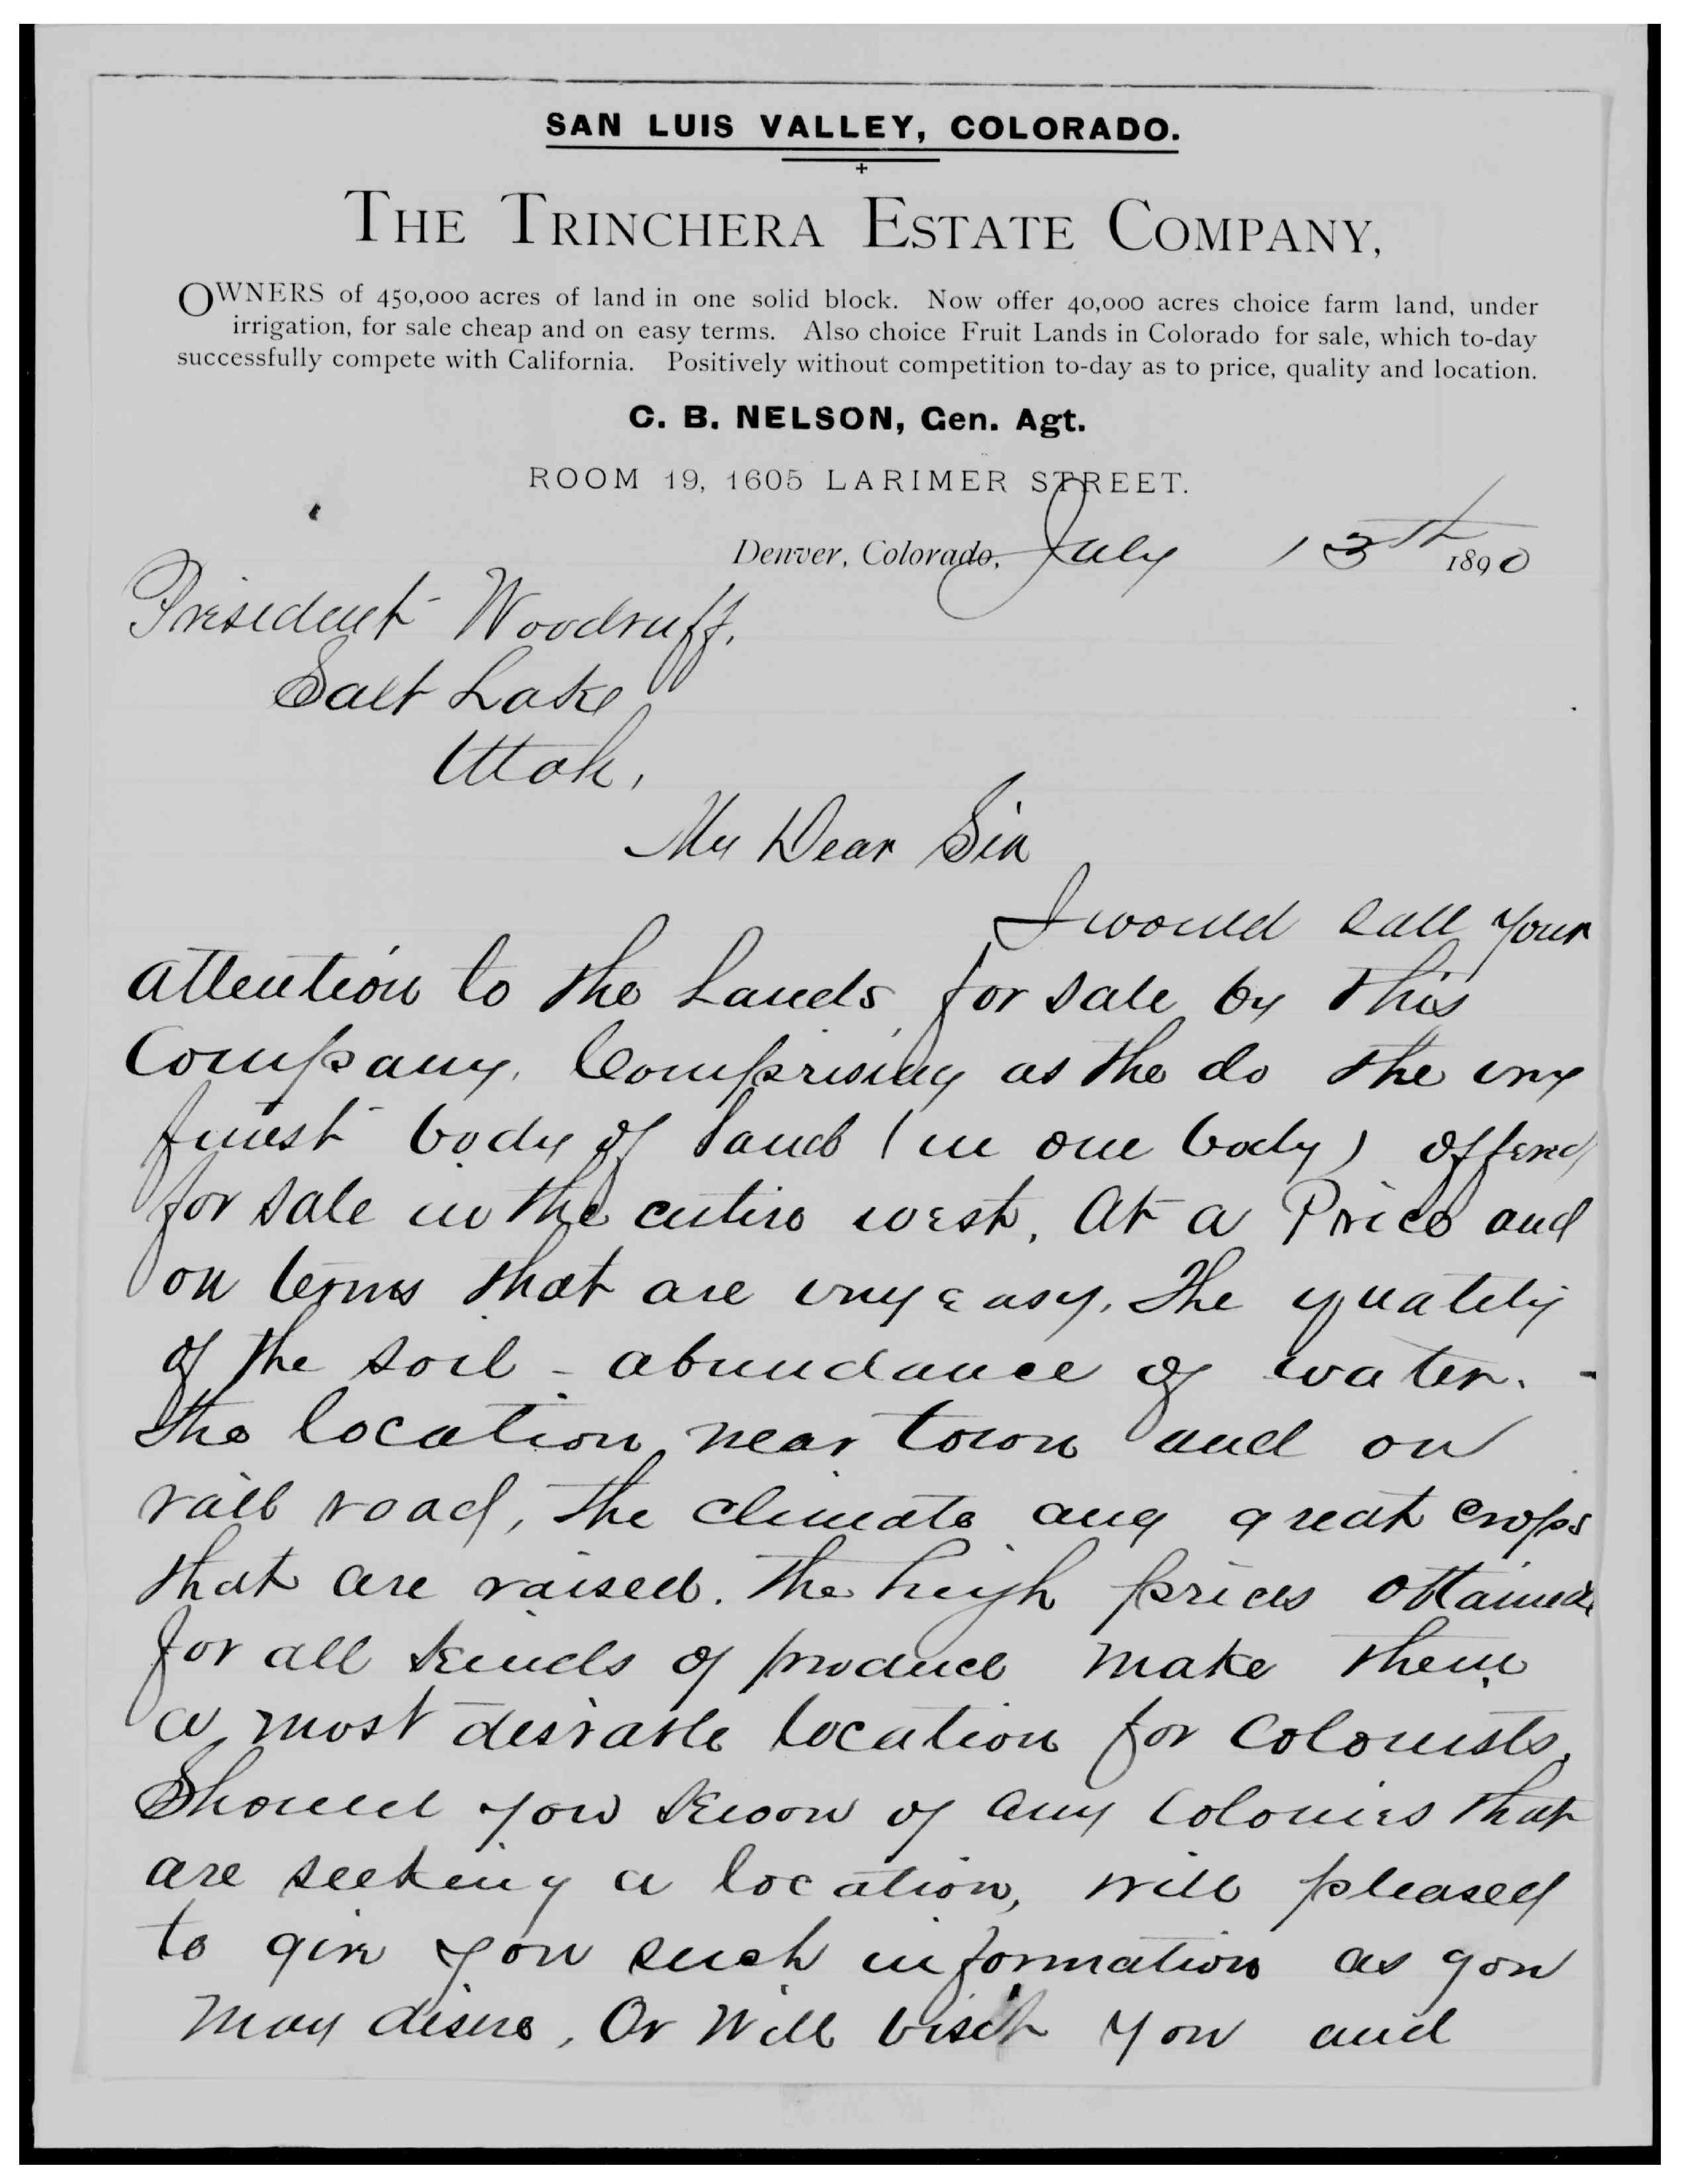 SAN LUIS VALLEY, COLORADO.
THE TRINCHERA ESTATE COMPANY,
OWNERS of 450,000 acres of land in one solid block. Now offer 40,000 acres choice farm land, under
irrigation, for sale cheap and on easy terms. Also choice Fruit Lands in Colorado for sale, which to-day
successfully compete with California. Positively without competition to-day as to price, quality and location.
C. B. NELSON, Gen. Agt.
ROOM 19, 1605 LARIMER STREET.
Denver, Colorado, July 13th 1890
President Woodruff.
Salt Lake
Utah,
My Dear Sir
I would call your
attention to the Lands for sale by this
Company, Comprising as the do the very
finest body of land (in one body) offered
for sale in the entire west, at a Price and
on terms that are very easy. The quality
of the soil - abundance of water. -
the location near town and on
rail road, the climate any great crops
that are raised. the high prices obtained
for all kinds of produce make them
a most desirable location for colonists.
Should you know of any colonies that
are seeking a location, will pleased
to give you such information as you
may desire, Or Will visit you and